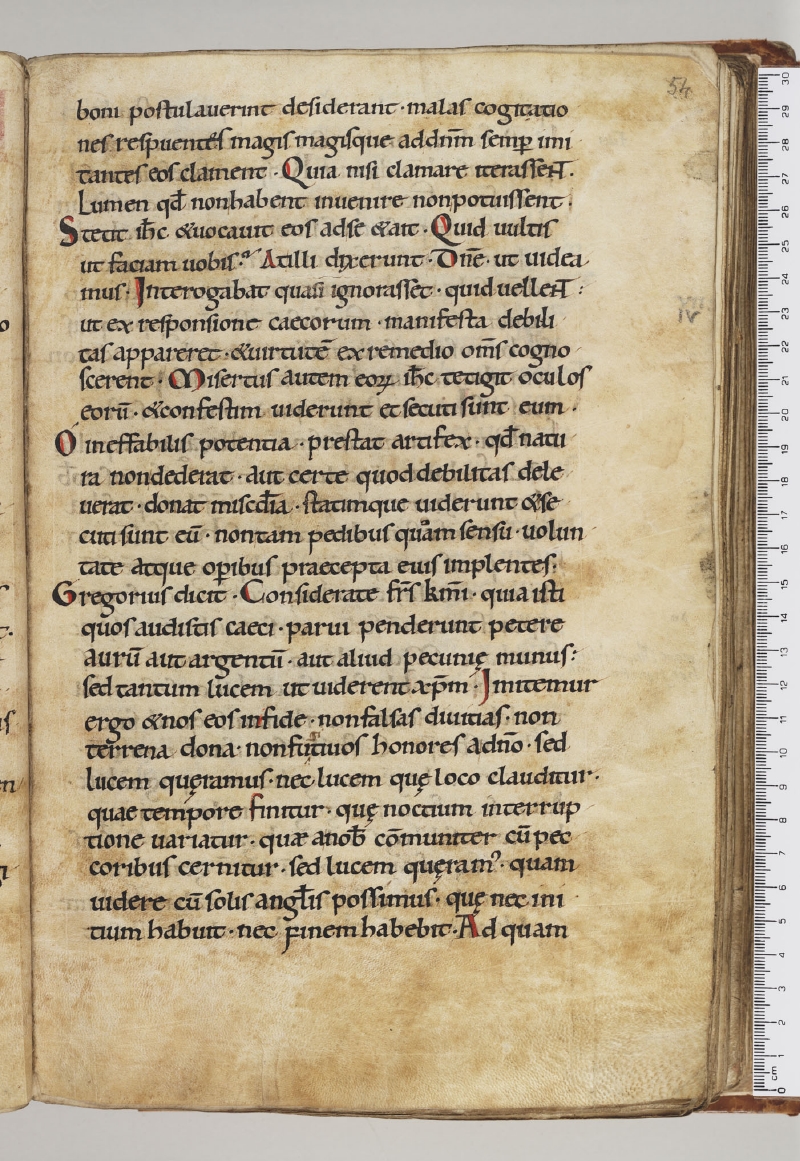 54
boni postulauerint desiderant · malas cogitatio
nes respuentes magis magisque addnm̄ semp̄ imi
tantes eos clament · Quia nisi clamare iterassent.
Lumen qđ non habent inuenire non potuissent.
Stetit ih̄c &uocauit eos adse &ait · Quid uultis
ut faciam uobis. At illi dixerunt · Dn̄e · ut uidea
mus · Interogabat quasi ignorasset · quid uellent :
ut ex responsione caecorum · manifesta debili
tas appareret · &uirtutē ex remedio om̄s cogno
scerent · Misertus autem eoꝝ ih̄c tetigit oculos
eorū · &confestim uiderunt et secuti sunt eum ·
O ineffabilis potentia · prestat artifex · qđ natu
ra non dederat · aut certe quod debilitas dele
uerat · donat misc̄dia · statimque uiderunt &se
cuti sunt eū · non tam pedibus quam sensu · uolun
tate atque oꝑibus praecepta eius implentes :
Gregorius dicit · Considerate fr̄s km̄i · quia isti
quos audistis caeci · parui penderunt petere
aurū aut argentū · aut aliud pecunię munus :
sed tantum lucem ut uiderent xp̄m · Imitemur
ergo &nos eos in fide · non falsas diuitias · non
terrena dona · non futiuos honores a dn̄o · sed
lucem quęramus · nec lucem quę loco clauditur ·
quae tempore finitur · quę noctium interrup
tione uariatur · quæ a nob̄ cōmuniter cū pec
coribus cernitur · sed lucem quęram᾽ · quam
uidere cū solis angłis possimus · quę nec ini
tium habuit · nec finem habebit · Ad quam
IV